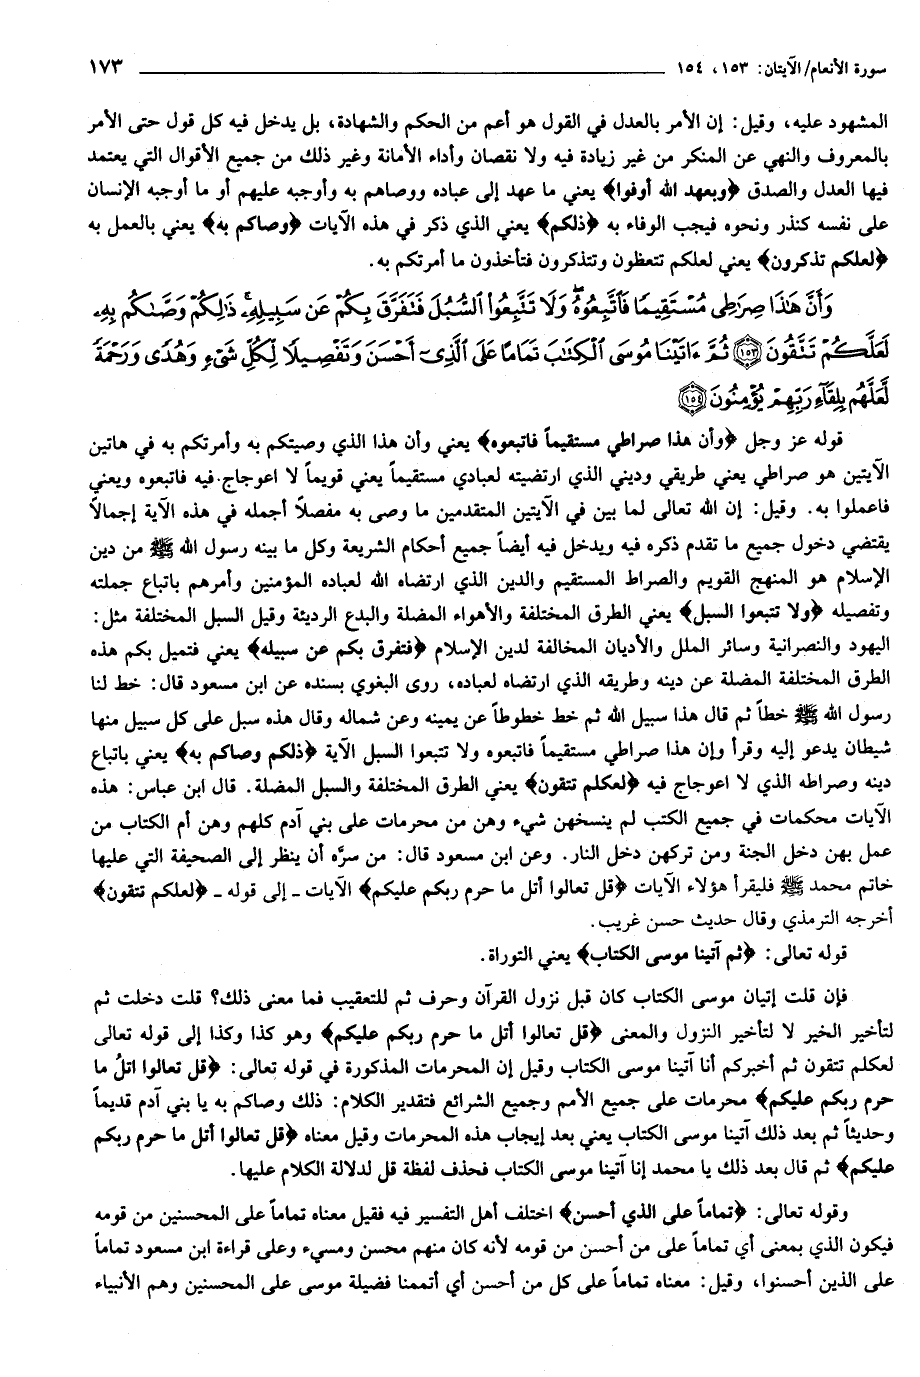 سورة الأنعام/الآيتان: ١٥٣، ١٥٤ ١٧٣
المشهود عليه، وقيل: إن الأمر بالعدل في القول هو أعم من الحكم والشهادة، بل يدخل فيه كل قول حتى الأمر
بالمعروف والنهي عن المنكر من غير زيادة فيه ولا نقصان وأداء الأمانة وغير ذلك من جميع الأقوال التي يعتمد
فيها العدل والصدق ﴿وبعهد الله أوفوا﴾ يعني ما عهد إلى عباده ووصاهم به وأوجبه عليهم أو ما أوجبه الإنسان
على نفسه كنذر ونحوه فيجب الوفاء به ﴿ذلكم﴾ يعني الذي ذكر في هذه الآيات ﴿وصاكم به﴾ يعني بالعمل به
﴿لعلكم تذكرون﴾ يعني لعلكم تتعظون وتتذكرون فتأخذون ما أمرتكم به.
وَأَنَّ هَٰذَا صِرَٰطِى مُسْتَقِيمًا فَٱتَّبِعُوهُ ۖ وَلَا تَتَّبِعُوا۟ ٱلسُّبُلَ فَتَفَرَّقَ بِكُمْ عَن سَبِيلِهِۦ ۚ ذَٰلِكُمْ وَصَّىٰكُم بِهِۦ
لَعَلَّكُمْ تَتَّقُونَ ﴿١٥٣﴾ ثُمَّ ءَاتَيْنَا مُوسَى ٱلْكِتَٰبَ تَمَامًا عَلَى ٱلَّذِىٓ أَحْسَنَ وَتَفْصِيلًا لِّكُلِّ شَىْءٍ وَهُدًى وَرَحْمَةً
لَّعَلَّهُم بِلِقَآءِ رَبِّهِمْ يُؤْمِنُونَ ﴿١٥٤﴾
قوله عز وجل ﴿وأن هذا صراطي مستقيماً فاتبعوه﴾ يعني وأن هذا الذي وصيتكم به وأمرتكم به في هاتين
الآيتين هو صراطي يعني طريقي وديني الذي ارتضيته لعبادي مستقيماً يعني قويماً لا اعوجاج فيه فاتبعوه ويعني
فاعملوا به. وقيل: إن الله تعالى لما بين في الآيتين المتقدمين ما وصى به مفصلاً أجمله في هذه الآية إجمالاً
يقتضي دخول جميع ما تقدم ذكره فيه ويدخل فيه أيضاً جميع أحكام الشريعة وكل ما بينه رسول الله ﷺ من دين
الإسلام هو المنهج القويم والصراط المستقيم والدين الذي ارتضاه الله لعباده المؤمنين وأمرهم باتباع جملته
وتفصيله ﴿ولا تتبعوا السبل﴾ يعني الطرق المختلفة والأهواء المضلة والبدع الرديئة وقيل السبل المختلفة مثل:
اليهود والنصرانية وسائر الملل والأديان المخالفة لدين الإسلام ﴿فتفرق بكم عن سبيله﴾ يعني فتميل بكم هذه
الطرق المختلفة المضلة عن دينه وطريقه الذي ارتضاه لعباده، روى البغوي بسنده عن ابن مسعود قال: خط لنا
رسول الله ﷺ خطاً ثم قال هذا سبيل الله ثم خط خطوطاً عن يمينه وعن شماله وقال هذه سبل على كل سبيل منها
شيطان يدعو إليه وقرأ وإن هذا صراطي مستقيماً فاتبعوه ولا تتبعوا السبل الآية ﴿ذلكم وصاكم به﴾ يعني باتباع
دينه وصراطه الذي لا اعوجاج فيه ﴿لعكلم تتقون﴾ يعني الطرق المختلفة والسبل المضلة. قال ابن عباس: هذه
الآيات محكمات في جميع الكتب لم ينسخهن شيء وهن من محرمات على بني آدم كلهم وهن أم الكتاب من
عمل بهن دخل الجنة ومن تركهن دخل النار. وعن ابن مسعود قال: من سرَّه أن ينظر إلى الصحيفة التي عليها
خاتم محمد ﷺ فليقرأ هؤلاء الآيات ﴿قل تعالوا أتل ما حرم ربكم عليكم﴾ الآيات ـ إلى قوله ـ ﴿لعلكم تتقون﴾
أخرجه الترمذي وقال حديث حسن غريب.
قوله تعالى: ﴿ثم آتينا موسى الكتاب﴾ يعني التوراة.
فإن قلت إتيان موسى الكتاب كان قبل نزول القرآن وحرف ثم للتعقيب فما معنى ذلك؟ قلت دخلت ثم
لتأخير الخبر لا لتأخير النزول والمعنى ﴿قل تعالوا أتل ما حرم ربكم عليكم﴾ وهو كذا وكذا إلى قوله تعالى
لعكلم تتقون ثم أخبركم أنا آتينا موسى الكتاب وقيل إن المحرمات المذكورة في قوله تعالى: ﴿قل تعالوا اتلُ ما
حرم ربكم عليكم﴾ محرمات على جميع الأمم وجميع الشرائع فتقدير الكلام: ذلك وصاكم به يا بني آدم قديماً
وحديثاً ثم بعد ذلك آتينا موسى الكتاب يعني بعد إيجاب هذه المحرمات وقيل معناه ﴿قل تعالوا أتل ما حرم ربكم
عليكم﴾ ثم قال بعد ذلك يا محمد إنا آتينا موسى الكتاب فحذف لفظة قل لدلالة الكلام عليها.
وقوله تعالى: ﴿تماماً على الذي أحسن﴾ اختلف أهل التفسير فيه فقيل معناه تماماً على المحسنين من قومه
فيكون الذي بمعنى أي تماماً على من أحسن من قومه لأنه كان منهم محسن ومسيء وعلى قراءة ابن مسعود تماماً
على الذين أحسنوا، وقيل: معناه تماماً على كل من أحسن أي أتممنا فضيلة موسى على المحسنين وهم الأنبياء